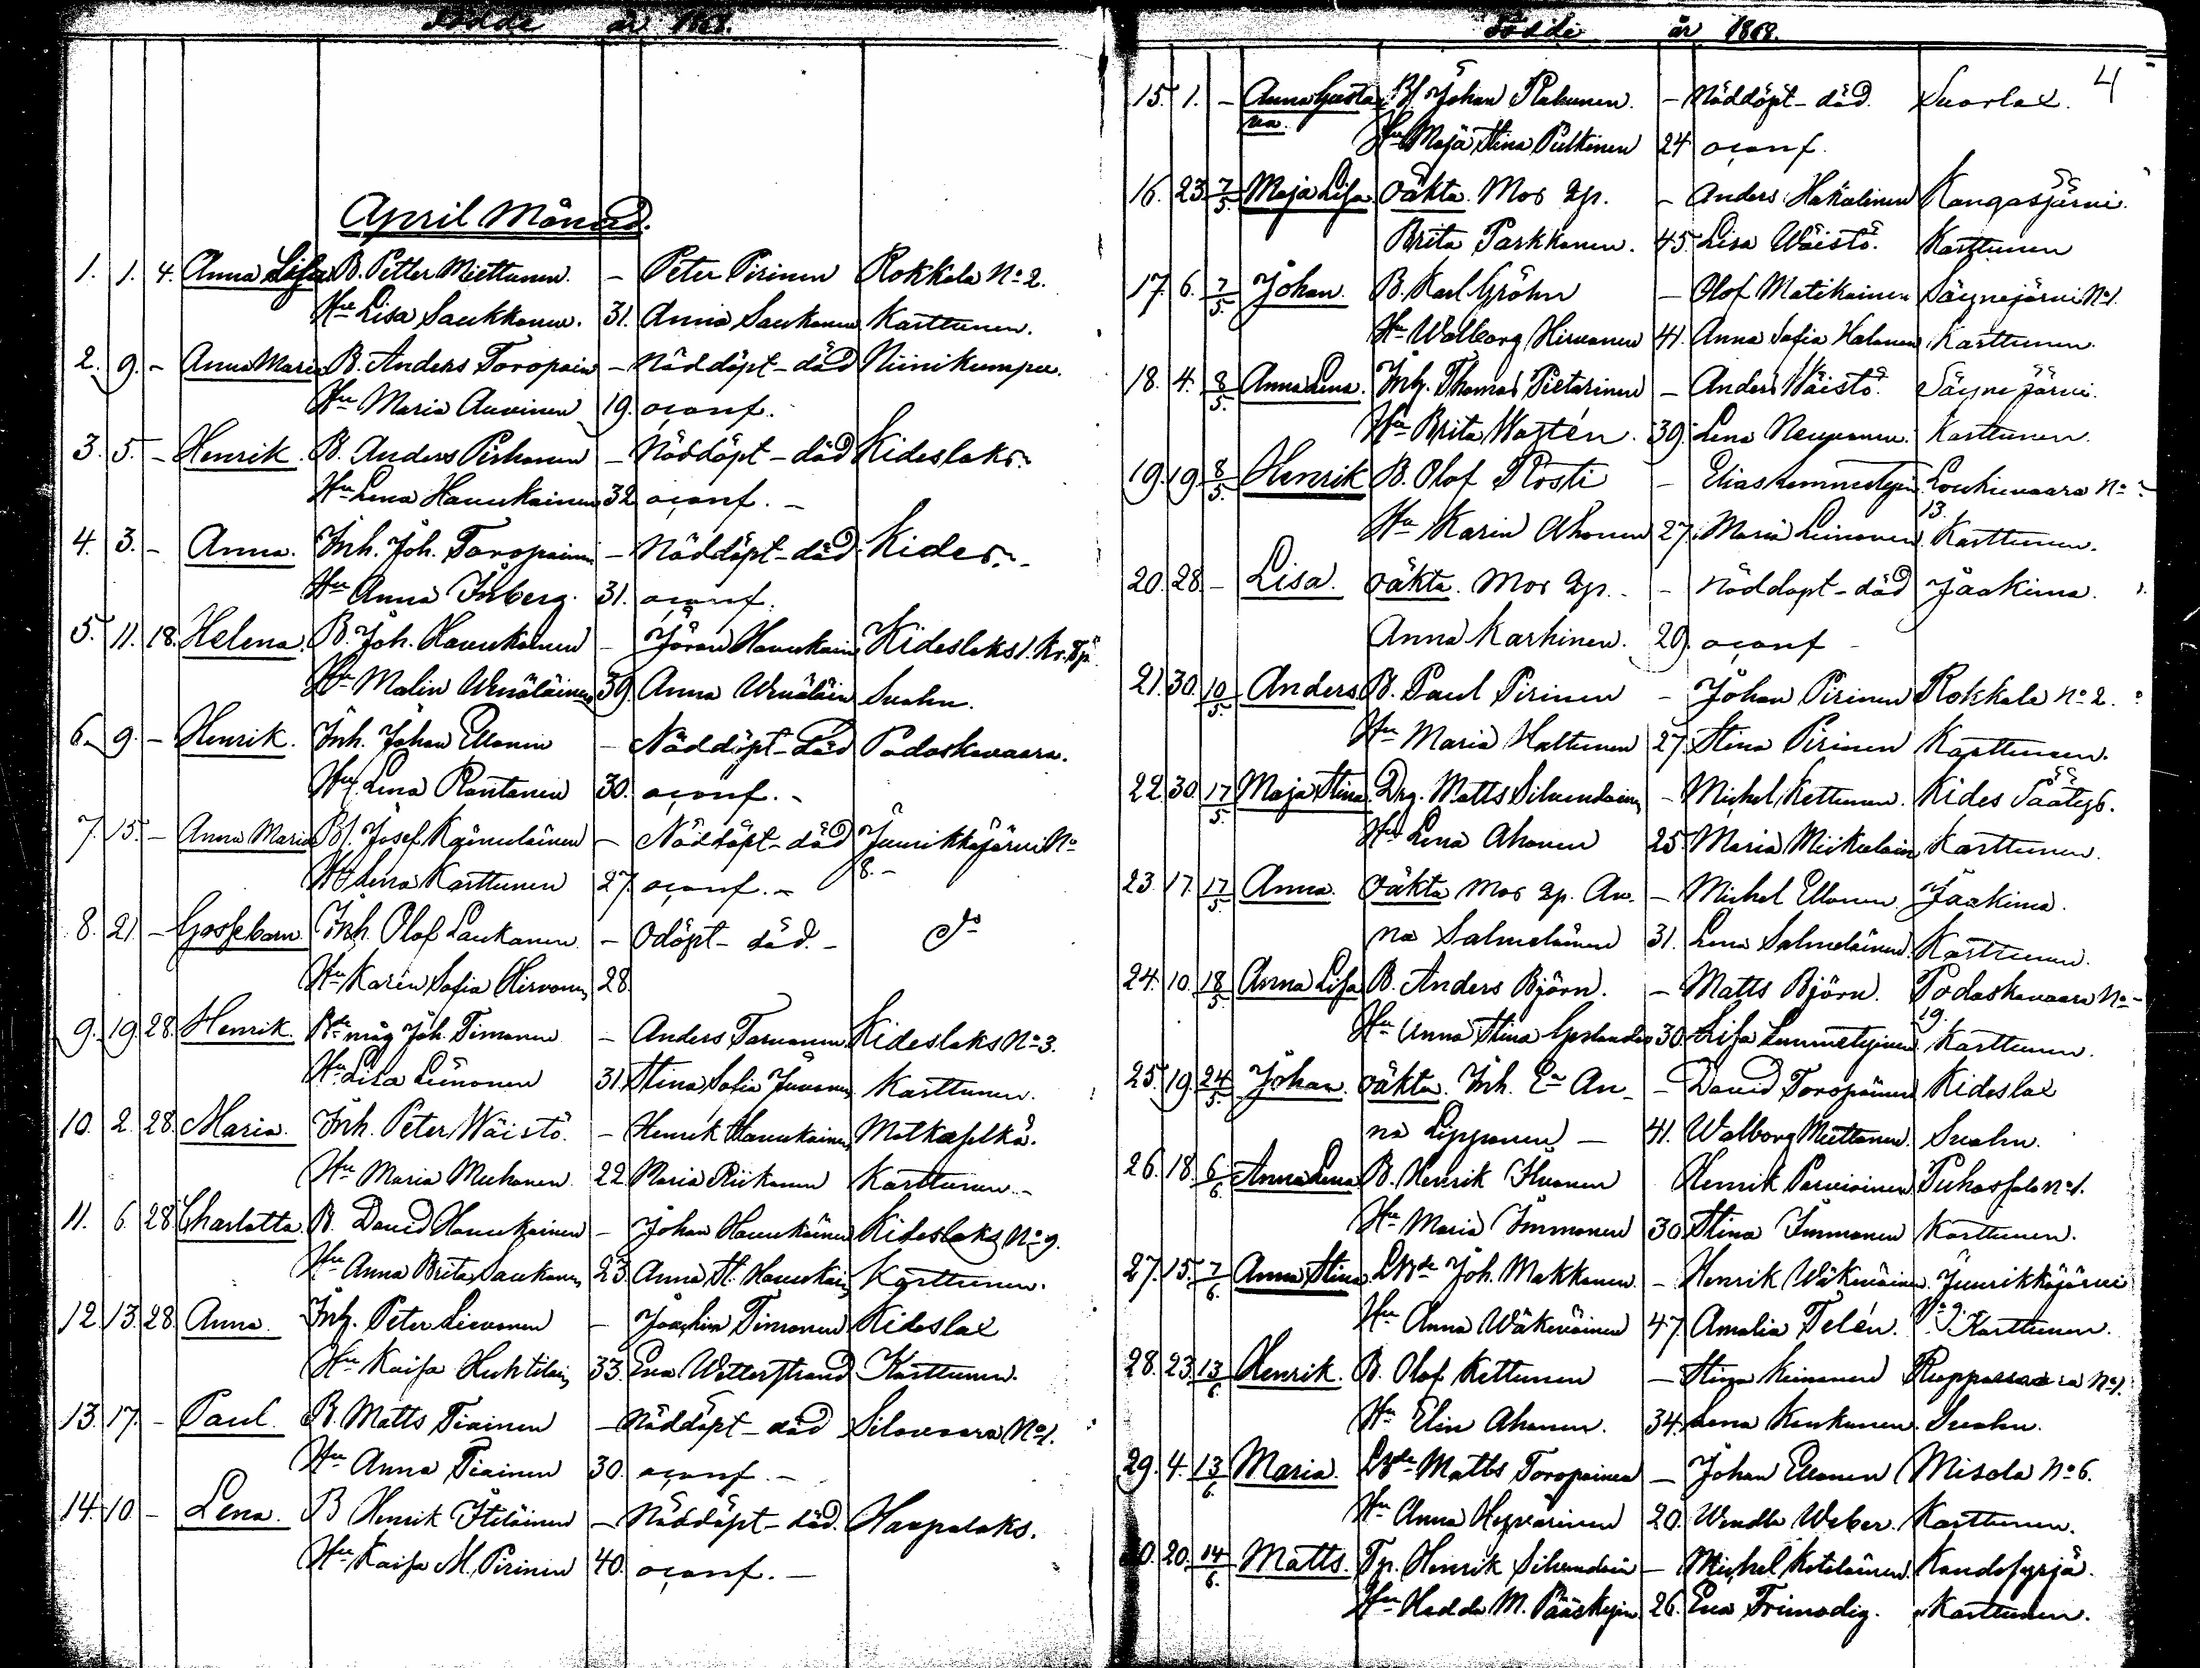 Födde år 1868.
April Månad.
1. 1. 4. Anna Lisa B. Petter Miettunen. - Peter Pirinen Rokkala No 2.
Hu Lisa Saukkonen. 31. Anna Saukonen Karttunen.
2. 9. - Anna Maria B. Anders Toropain - Nöddöpt - död Niinikumpu.
Hu Maria Auvinen 19. oconf.
3. 5. - Henrik. B. Anders Pirhonen - Nöddöpt - död Kideslaks.
Hu Lena Haukkainen 32 oconf. -
4. 3. - Anna. Inh. Joh. Toropainen - Nöddöpt - död Kides.
Hu Anna Isberg. 31. oconf.
5. 11. 18. Helena. B. Joh. Haukkainen - Jöran Haukkain Kideslaks 1. Kr. Tp.
Hu Malin Wenäläinen 39. Anna Wenäläin Svahn.
6. 9. - Henrik. Inh. Johan Ellonen - Nöddöpt - död Podoskavaara.
Hu Lena Rantanen 30. oconf. -
7. 15. - Anna Maria Bf. Josef Kämäräinen - Nöddöpt - död Juurikkajärvi No
Hu Lena Karttunen 27. oconf. - 8. -
8. 21. - Gossebarn Inh. Olof Laukanen - Odöpt - död. - do
Hu Karin Sofia Hirvonen 28
9. 19. 28. Henrik. Bde måg Joh. Timonen - Anders Tarvanen Kideslaks No 3.
Hu Lisa Leinonen 31. Stina Sofia Juvonen Karttunen.
10. 2. 28. Maria. Inh. Peter Wäistö. - Henrik Haukkainen Matkaselkä.
Hu Maria Muhonen 22. Maria Riikonen Karttunen. -
11. 6. 28 Charlotta. B. David Haukkainen - Johan Haukkainen Kideslaks No 9.
Hu Anna Brita Saukonen 23. Anna St. Haukkain Karttunen.
12. 13. 28. Anna. Inh. Peter Lievonen - Joachim Timonen Kideslax
Hu Kaisa Huhtilain 33. Eva Wetterstrand Karttunen.
13. 17. - Paul. B. Matts Tiainen - Nöddöpt - död Silovaara No 1.
Hu Anna Tiainen 30. oconf. -
14. 10. - Lena. B Henrik Itäläinen - Nöddöpt - död. Haapalaks.
Hu Kaisa M. Pirinen 40. oconf. -
Födde år 1868.
4
15. 1. - Anna Gusta Bf. Johan Pakunen. - Nöddöpt - död. Suorlax.
va. Hu Maja Stina Pulkinen 24 oconf.
16. 23. 7/5. Maja Lisa oäkta. Mor Qp. - Anders Hakulinen Kangasjärvi.
Brita Parkkonen. 45. Lisa Wäistö. Karttunen
17. 6. 7/5. Johan. B. Karl Gröhn - Olof Matikainen Säynejärvi No 1.
Hu Walborg Hirvonen 41. Anna Sofia Halonen Karttunen.
18. 4. 8/5. Anna Lena. Inh. Thomas Pietarinen - Anders Wäistö. Säynejärvi.
Hu Brita Wastén. 39. Lena Neuvonen. Karttunen.
19. 19. 8/5. Henrik B. Olof Rosti - Elias Lemmetyin Loukuvaara No
Hu Karin Ahonen 27. Maria Leinonen. 13. Karttunen.
20. 28. - Lisa. oäkta. Mor Qp. - - Nöddöpt - död Jaakima.
Anna Karhinen. 29. oconf -
21. 30. 10/5. Anders B. Paul Pirinen - Johan Pirinen Rokkala No 2.
Hu Maria Haltunen 27. Stina Pirinen Karttunen.
22. 30. 17/5. Maja Stina. Drg. Matts Silvendoin - Michel Kettunen. Kides Säätyb.
Hu Lena Ahonen 25. Maria Miikulain Karttunen.
23. 17. 17/5. Anna. oäkta Mor Qp. An- - Michel Ellonen. Jaakima.
na Salmelainen 31. Lena Salmelainen Karttunen.
24. 10. 18/5. Anna Lisa B. Anders Björn. - Matts Björn. Podoskavaara No -
Hu Anna Stina 30. Lisa Lemmetyinen. 19. Karttunen.
25. 19. 24/5. Johan. oäkta. Inh. Ea An- - David Toropainen Kideslax
na Lipponen - 41. Walborg Miettunen. Svahn.
26. 18. 6/6. Anna Lena B. Henrik Ihvonen Henrik Parviainen Puhossalo No 1.
Hu Maria Immonen 30. Stina Immonen Karttunen.
27. 15. 7/6. Anna Stina Lbde Joh. Makkonen. - Henrik Wäkeväinen. Juurikkajärvi
Hu Anna Wäkeväinen 47. Amalia Telén. No 9. Karttunen.
28. 23. 13/6. Henrik. B. Olof Kettunen - Stina Keinonen Ruppovaara No 1.
Hu Elin Ahonen. 34. Lena Koukonen. Svahn.
29. 4. 13/6. Maria. Lbde Matts Toropainen - Johan Ellonen Misola No 6.
Hu Anna Heyvärinen 20. Wendla Weber. Karttunen.
30. 20. 14/6. Matts. Tp. Henrik Silvendoin - Michel Kotolainen. Kandesyrjä.
Hu Hedda M. Pääskyin 26. Eva Frimodig. Karttunen.